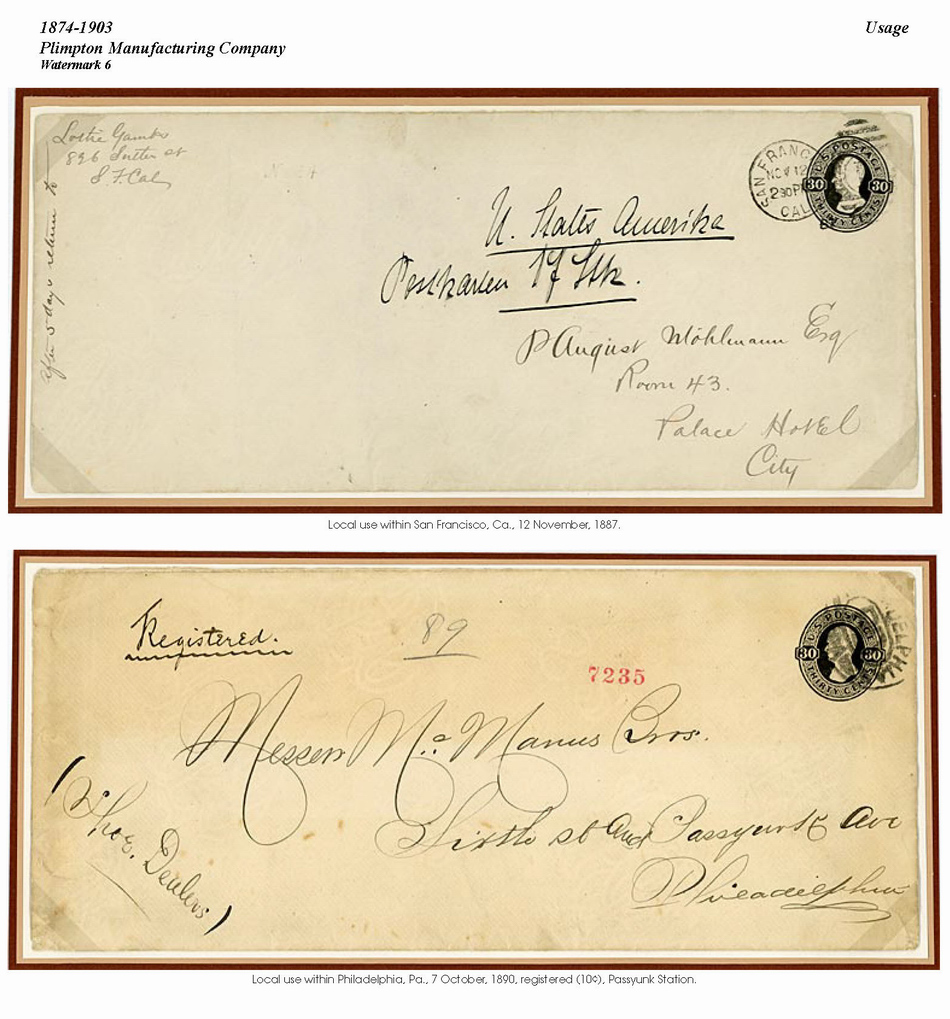 1874-1903
Usage
Plimpton Manufacturing Company
Watermark 6
896 Sutter st
S. F. Cal
after 5 days return to
SAN FRANC
NOV 12
2 30 PM
CAL
U.S. POSTAGE
30 30
THIRTY CENTS
U. States Amerika
Postkarten 17 Stk.
P August Möhlmann Esq
Room 43.
Palace Hotel
City
Local use within San Francisco, Ca., 12 November, 1887.
Registered.
89
7235
U.S. POSTAGE
30 30
THIRTY CENTS
DELPHIA
Messers Mc Manus Bros.
(Shoe Dealers.)
Sixth st and Passyunk Ave
Philadelphia
Local use within Philadelphia, Pa., 7 October, 1890, registered (10¢), Passyunk Station.